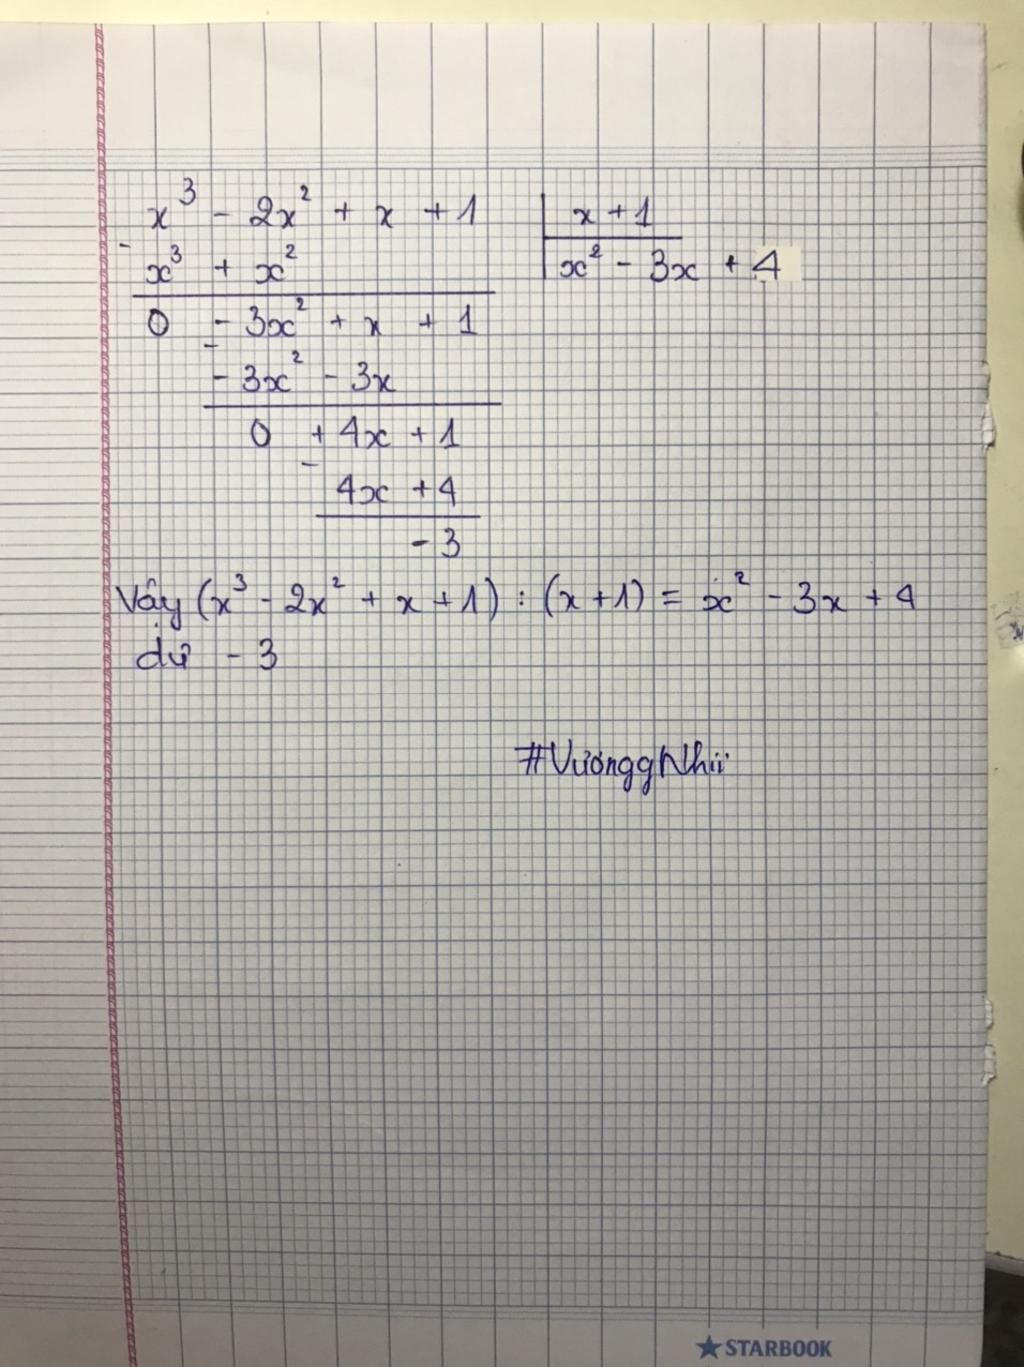 x³ - 2x² + x + 1 | x + 1
- x³ + x² | x² - 3x + 4
0 - 3x² + x + 1
- - 3x² - 3x
0 + 4x + 1
- 4x + 4
- 3
Vậy (x³ - 2x² + x + 1) : (x + 1) = x² - 3x + 4
dư - 3
#VươnggNhii
★ STARBOOK